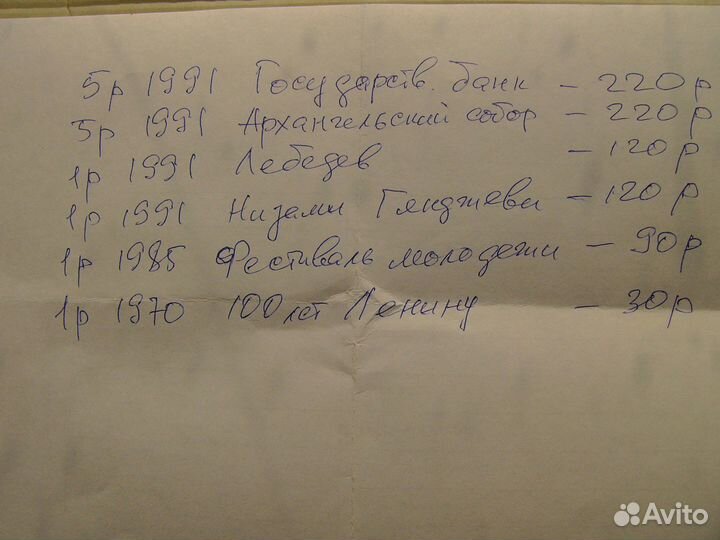 5р 1991 Государств. банк – 220р
5р 1991 Архангельский собор – 220р
1р 1991 Лебедев – 120р
1р 1991 Низами Гянджеви – 120р
1р 1985 Фестиваль молодежи – 90р
1р 1970 100 лет Ленину – 30р
Avito